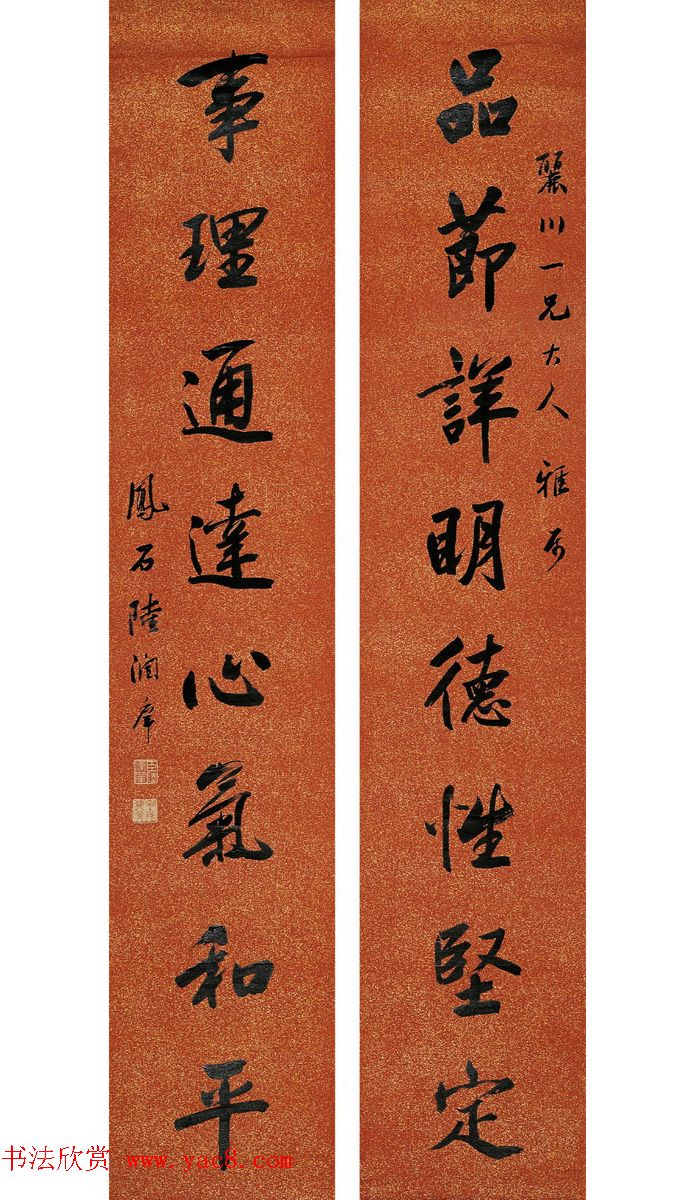 麗川一兄大人雅屬
品節詳明德性堅定
事理通達心氣和平
鳳石陸潤庠
书法欣赏 www.yac8.com